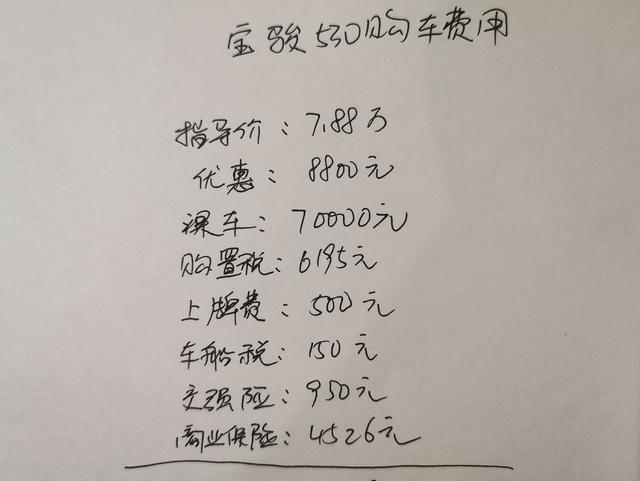 宝骏530购车费用
指导价：7.88万
优惠：8800元
裸车：70000元
购置税：6195元
上牌费：500元
车船税：150元
交强险：950元
商业保险：4526元